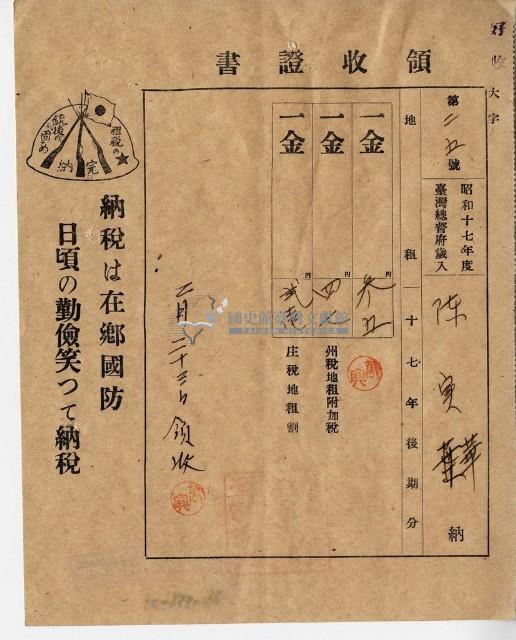 領收證書
好收
大字
第二五號
昭和十七年度
臺灣總督府歲入
陳
納
地租 十七年後期分
一金
円
一金
円
州稅地租附加稅
一金
円
庄稅地租割
二月二十三日領收
國史館臺灣文獻館
TAIWAN HISTORICA
租稅の完納
銃後の固め
納稅は在鄉國防
日頃の勤儉笑つて納稅